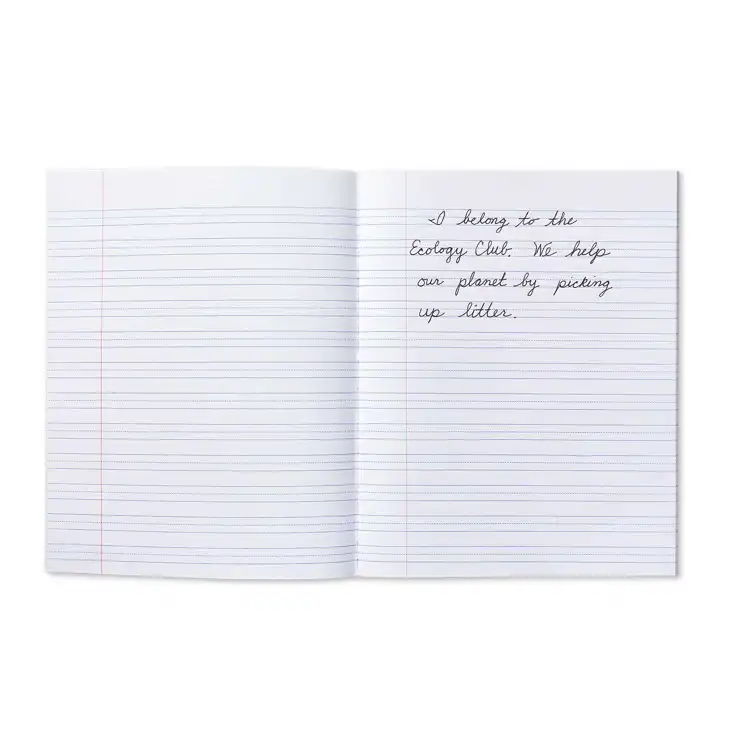 I belong to the
Ecology Club. We help
our planet by picking
up litter.